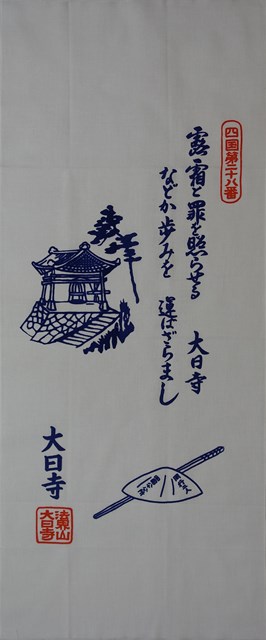 四国第二十八番
露霜と罪を照らせる 大日寺
などか歩みを 運ばざらまし
大日寺
法界山
大日寺